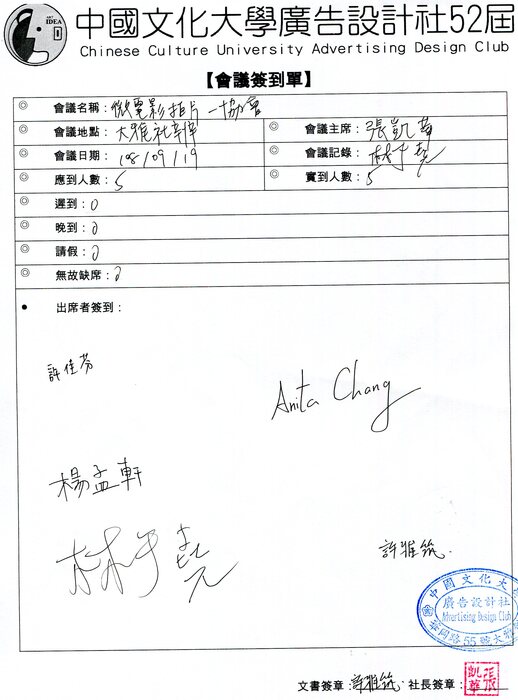 ART IDEA
中國文化大學廣告設計社52屆
Chinese Culture University Advertising Design Club
【會議簽到單】
◎ 會議名稱：微電影拍片一協會
◎ 會議地點：大雅社辦 ◎ 會議主席：張凱華
◎ 會議日期：108/09/19 ◎ 會議記錄：林子堯
◎ 應到人數：5 ◎ 實到人數：5
◎ 遲到：0
◎ 晚到：0
◎ 請假：0
◎ 無故缺席：0
● 出席者簽到：
許佳芬
Anita Chang
楊孟軒
林子堯
許雅筑
中國文化大
廣告設計社
Advertising Design Club
華岡路55號大
文書簽章：許雅筑 社長簽章：
張凱華